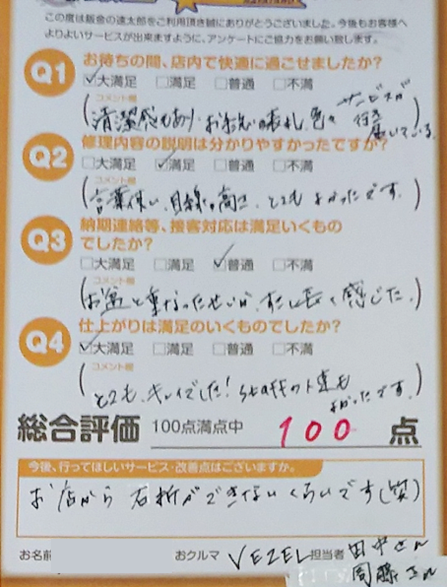 この度は鈑金の速太郎をご利用頂き誠にありがとうございました。今後もお客様へ
よりよいサービスが出来ますように、アンケートにご協力をお願い致します。
Q1 お待ちの間、店内で快適に過ごせましたか?
☑大満足 □満足 □普通 □不満
コメント欄
(清潔感もあり、お手洗い 色々サービスが行き届いている。)
Q2 修理内容の説明は分かりやすかったですか?
□大満足 ☑満足 □普通 □不満
コメント欄
(言葉使い、目線の高さ、とてもよかったです。)
Q3 納期連絡等、接客対応は満足いくもの
でしたか?
□大満足 □満足 ☑普通 □不満
コメント欄
(お盆と重なったせいか、少し長く感じた。)
Q4 仕上がりは満足のいくものでしたか?
☑大満足 □満足 □普通 □不満
コメント欄
(とても、キレイでした! staffの よかったです。)
総合評価 100点満点中 100 点
今後、行ってほしいサービス・改善点はございますか。
お店から右折ができないくらいです(笑)
お名前 おクルマ VEZEL 担当者 田中さん
さん